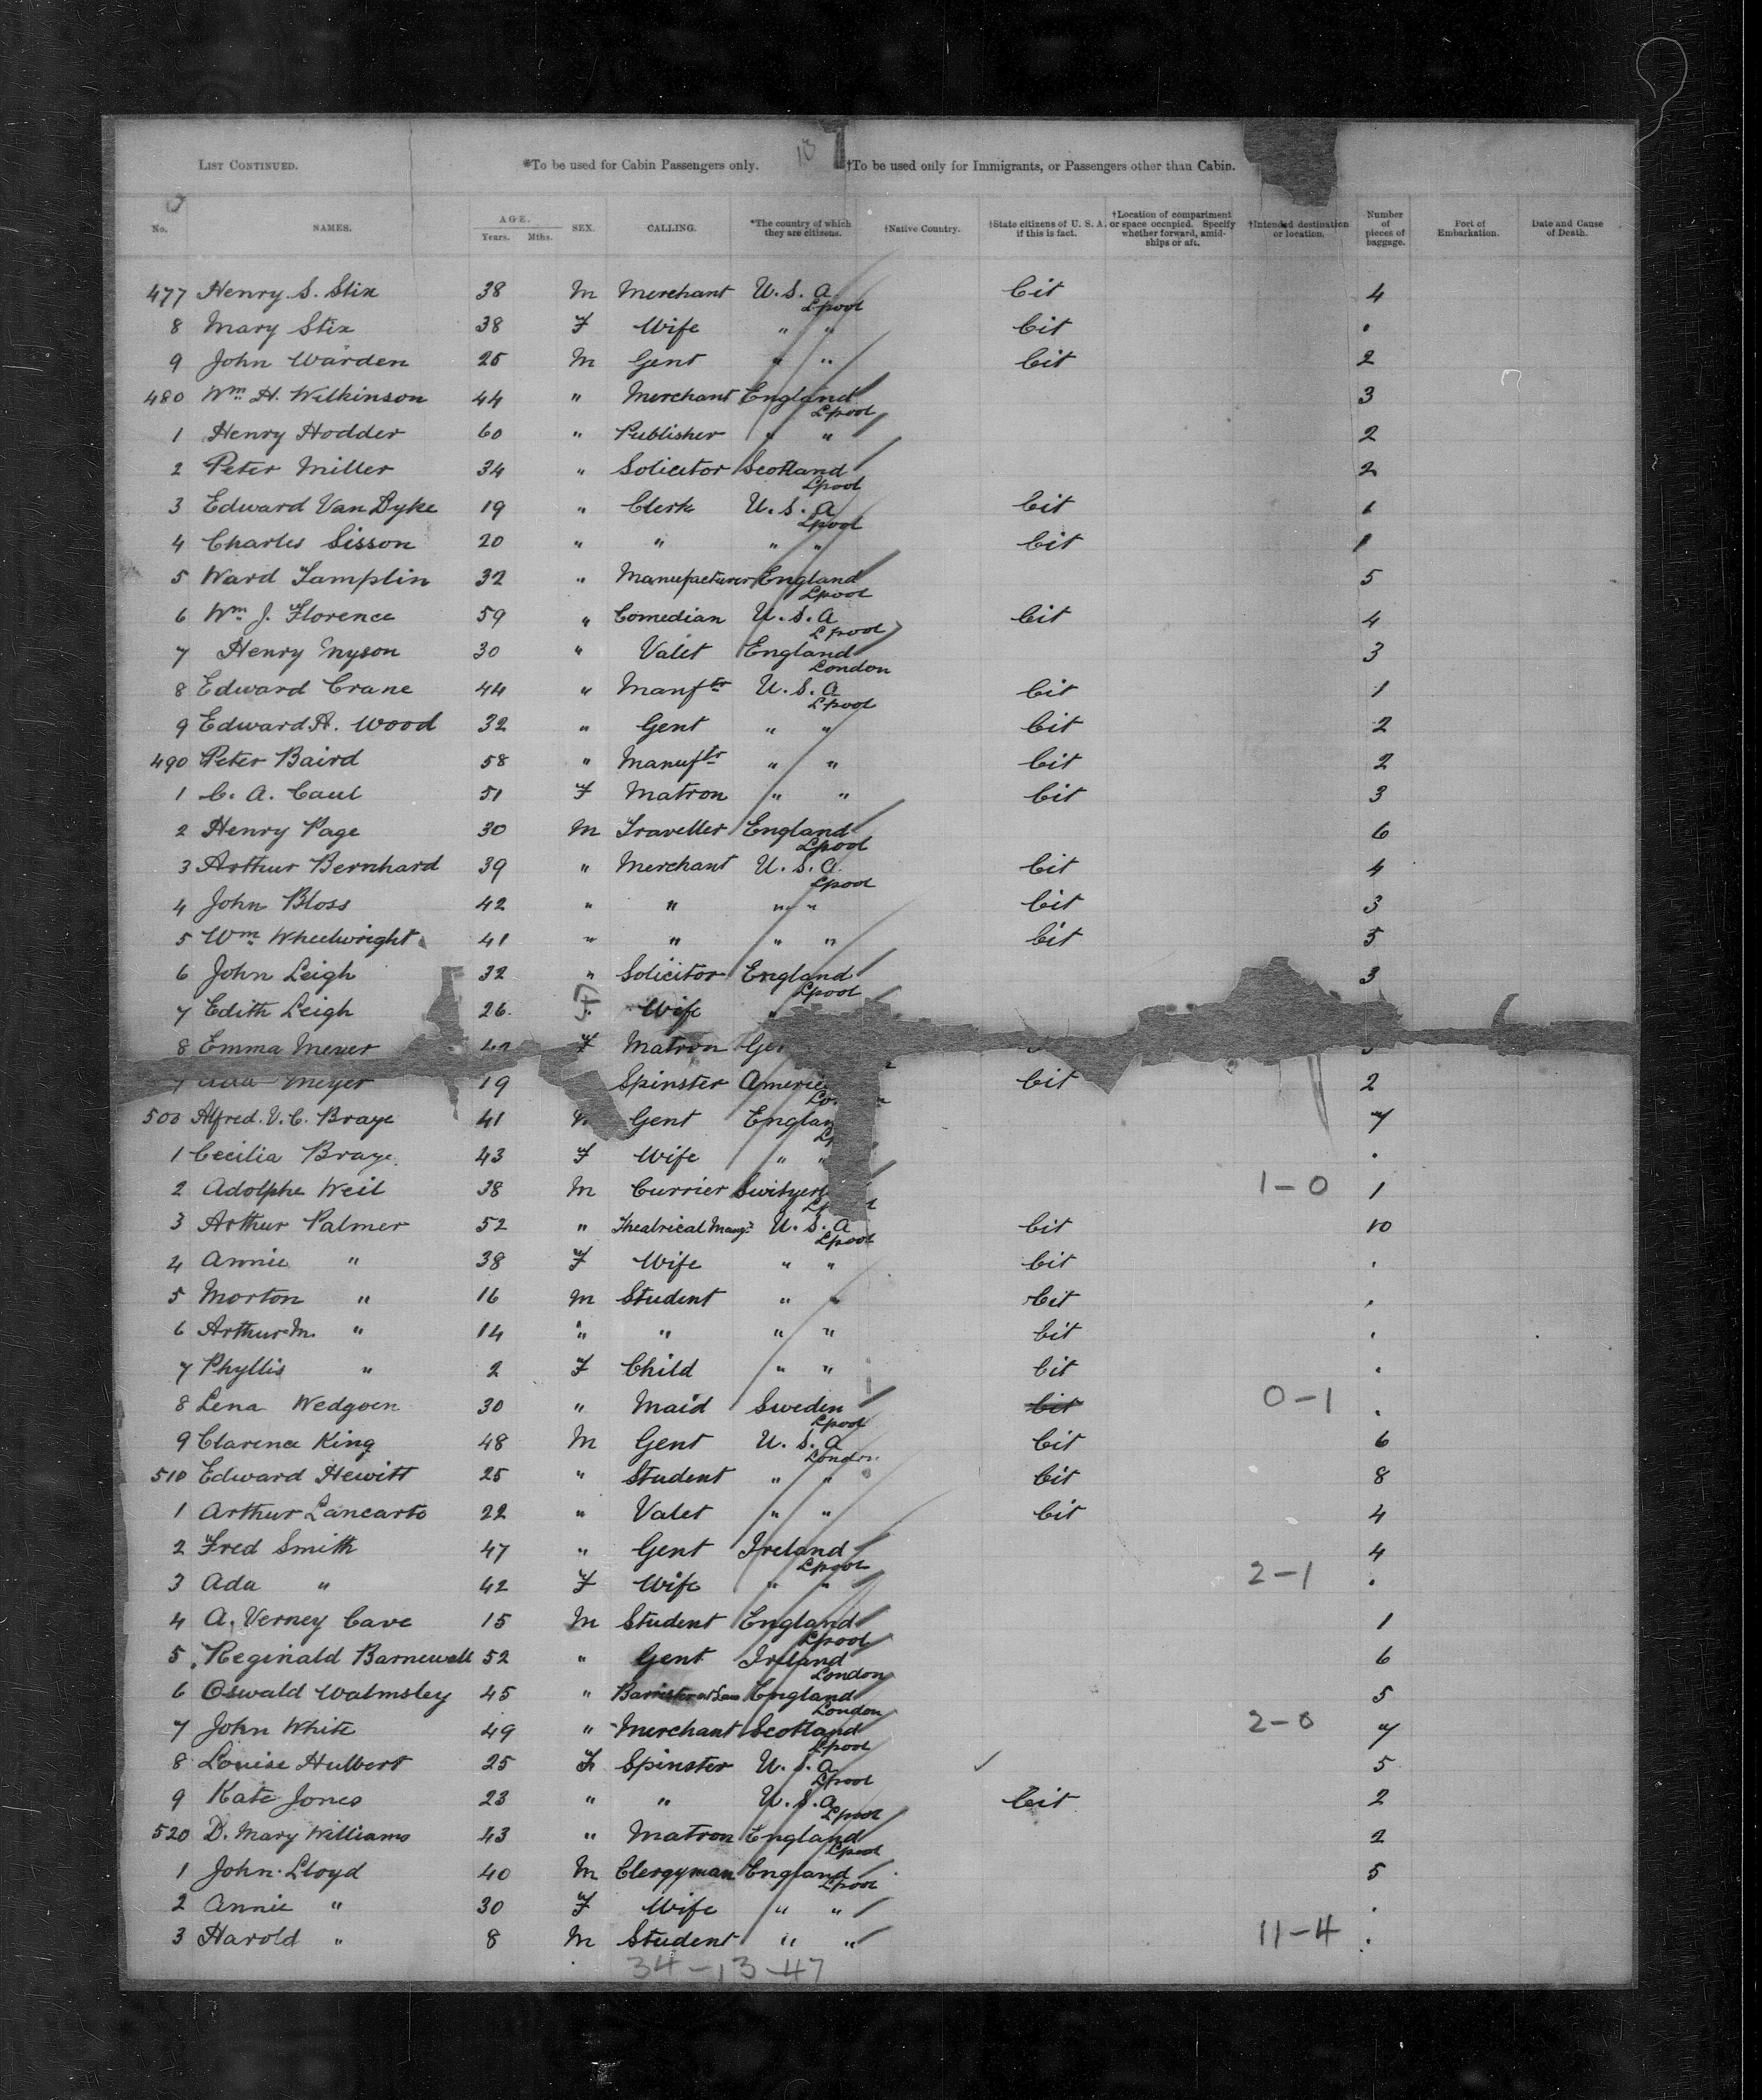 10
LIST CONTINUED. *To be used for Cabin Passengers only. †To be used only for Immigrants, or Passengers other than Cabin.
No. NAMES. AGE. Years. Mths. SEX. CALLING. *The country of which they are citizens. †Native Country. †State citizens of U. S. A. if this is fact. †Location of compartment or space occupied. Specify whether forward, amidships or aft. †Intended destination or location. Number of pieces of baggage. Port of Embarkation. Date and Cause of Death.
477 Henry S. Stix 38 M Merchant U.S.A Lpool Cit 4
8 Mary Stix 38 F Wife " " Cit .
9 John Warden 25 M Gent " " Cit 2
480 Wm H. Wilkinson 44 " Merchant England Lpool 3
1 Henry Hodder 60 " Publisher " " 2
2 Peter Miller 34 " Solicitor Scotland Lpool 2
3 Edward Van Dyke 19 " Clerk U.S.A Lpool Cit 1
4 Charles Sisson 20 " " " " Cit 1
5 Ward Tamplin 32 " Manufacturer England Lpool 5
6 Wm J. Florence 59 " Comedian U.S.A Lpool Cit 4
7 Henry 30 " Valet England London 3
8 Edward Crane 44 " Manuftr U.S.A Lpool Cit 1
9 Edward A. Wood 32 " Gent " " Cit 2
490 Peter Baird 58 " Manuftr " " Cit 2
1 C. A. Caul 51 F Matron " " Cit 3
2 Henry Page 30 M Traveller England Lpool 6
3 Arthur Bernhard 39 " Merchant U.S.A. Lpool Cit 4
4 John Bloss 42 " " " " Cit 3
5 Wm Wheelwright 41 " " " " Cit 5
6 John Leigh 32 " Solicitor England Lpool 3
7 Edith Leigh 26 F Wife "
8 Emma Meyer F Matron
Meyer 19 Spinster Cit 2
500 Alfred. V. C. Braye 41 Gent 7
1 Cecilia Braye 43 F Wife " " .
2 Adolphe Weil 38 M Currier 1-0 1
3 Arthur Palmer 52 " Theatrical Mangr U.S.A Lpool Cit 10
4 Annie " 38 F Wife " " Cit .
5 Morton " 16 M Student " " Cit .
6 Arthur M. " 14 " " " " Cit .
7 Phyllis " 2 F Child " " Cit .
8 Lena Wedgoen 30 " Maid Sweden Lpool Cit 0-1 .
9 Clarence King 48 M Gent U.S.A London Cit 6
510 Edward Hewitt 25 " Student " " Cit 8
1 Arthur Lancarto 22 " Valet " " Cit 4
2 Fred Smith 47 " Gent Ireland Lpool 4
3 Ada " 42 F Wife " " 2-1 .
4 A. Verney Cave 15 M Student England Lpool 1
5 Reginald Barnewell 52 " Gent Ireland London 6
6 Oswald Walmsley 45 " Barrister at Law England London 5
7 John White 49 " Merchant Scotland Lpool 2-0 7
8 Louise Hulbert 25 F Spinster U.S.A Lpool ✓ 5
9 Kate Jones 23 " " U.S.A Lpool Cit 2
520 D. Mary Williams 43 " Matron England Lpool 2
1 John Lloyd 40 M Clergyman England Lpool 5
2 Annie " 30 F Wife " " .
3 Harold " 8 M Student " " 11-4 .
34-13-47